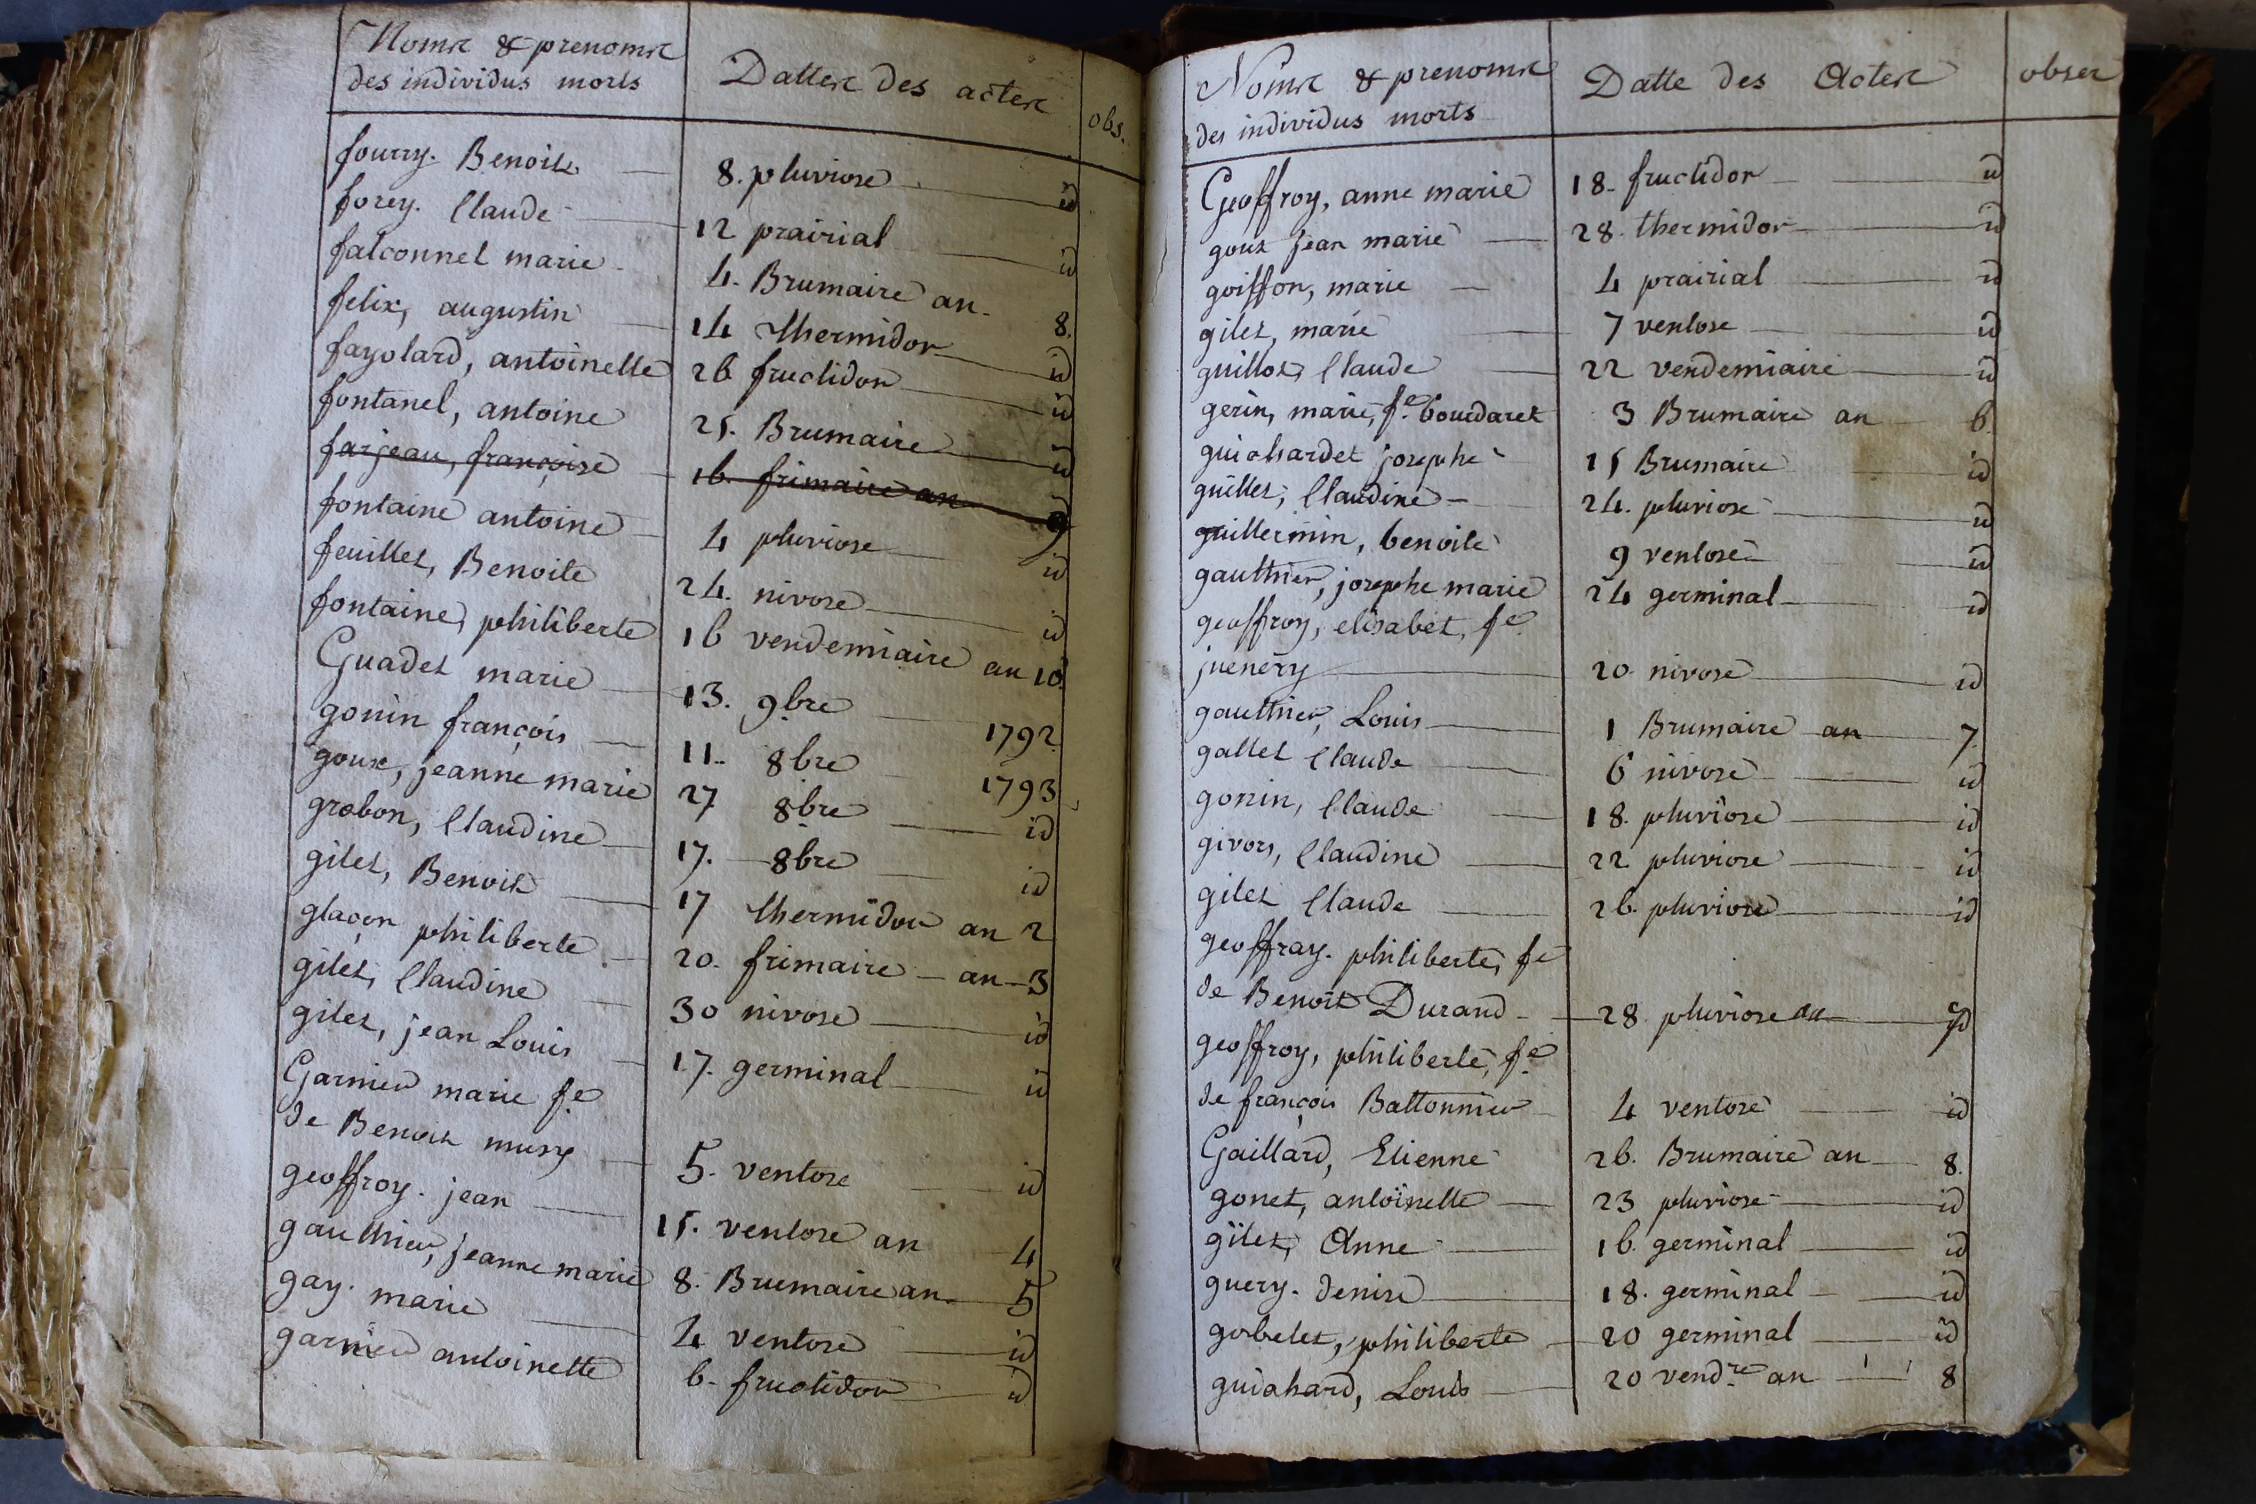 Noms & prenoms
des individus morts
Dattes des actes
obs.
fourry. Benoit 8. pluviose id
forey. Claude 12 prairial id
falconnet marie 4. Brumaire an 8.
felix, augustin 14 thermidor id
fayolard, antoinette 26 fructidor id
fontanel, antoine 25. Brumaire id
farjeau, françoise 16. frimaire an 9
fontaine antoine 4 pluviose id
feuillet, Benoite 24. nivose id
fontaine, philiberte 16 vendemiaire an 10.
Guadet marie 13. 9bre 1792.
gonin françois 11. 8bre 1793
goux, jeanne marie 27 8bre id
grobon, Claudine 17. 8bre id
gilet, Benoit 17 thermidor an 2
glaçon philiberte 20. frimaire an 3
gilet, Claudine 30 nivose id
gilet, jean Louis 17. germinal id
Garnier marie fe
de Benoit mussy 5. ventose id
geoffroy. jean 15. ventose an 4
gauthier, jeanne marie 8. Brumaire an 5
gay. marie 4 ventose id
garnier antoinette 6. fructidor id
Noms & prenoms
des individus morts
Datte des Actes
obser
Geoffroy, anne marie 18. fructidor id
goux jean marie 28. thermidor id
goiffon, marie 4 prairial id
gilet, marie 7 ventose id
guillot, Claude 22 vendemiaire id
gerin, marie, fe. bourdaret 3 Brumaire an 6.
guichardet josephe 15 Brumaire id
guillet, Claudine 24. pluviose id
guillermin, benoite 9 ventose id
gauthier, josephe marie 24 germinal id
geoffroy, elisabet, fe
juenery 20 nivose id
gauthier, Louis 1 Brumaire an 7.
gallet Claude 6 nivose id
gonin, Claude 18. pluviose id
givors, Claudine 22 pluviose id
gilet Claude 26. pluviose id
geoffray. philiberte, fe
de Benoit Durand 28 pluviose an id
geoffroy, philiberte, fe
de françois Battonnier 4 ventose id
Gaillard, Etienne 26. Brumaire an 8.
gonet, antoinette 23 pluviose id
gilet, Anne 16. germinal id
guery. denise 18. germinal id
gobelet, philiberte 20 germinal id
guichard, Louis 20 vendre an 8